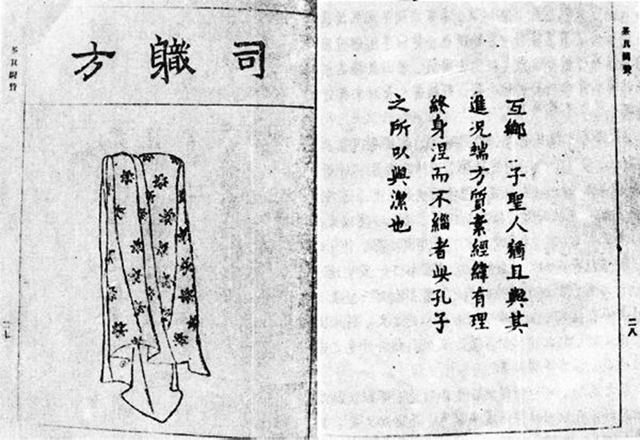 司軄方
茶具圖贊
互鄉 子聖人猶且與其
進况端方質素經緯有理
終身涅而不緇者此孔子
之所以與潔也
二八